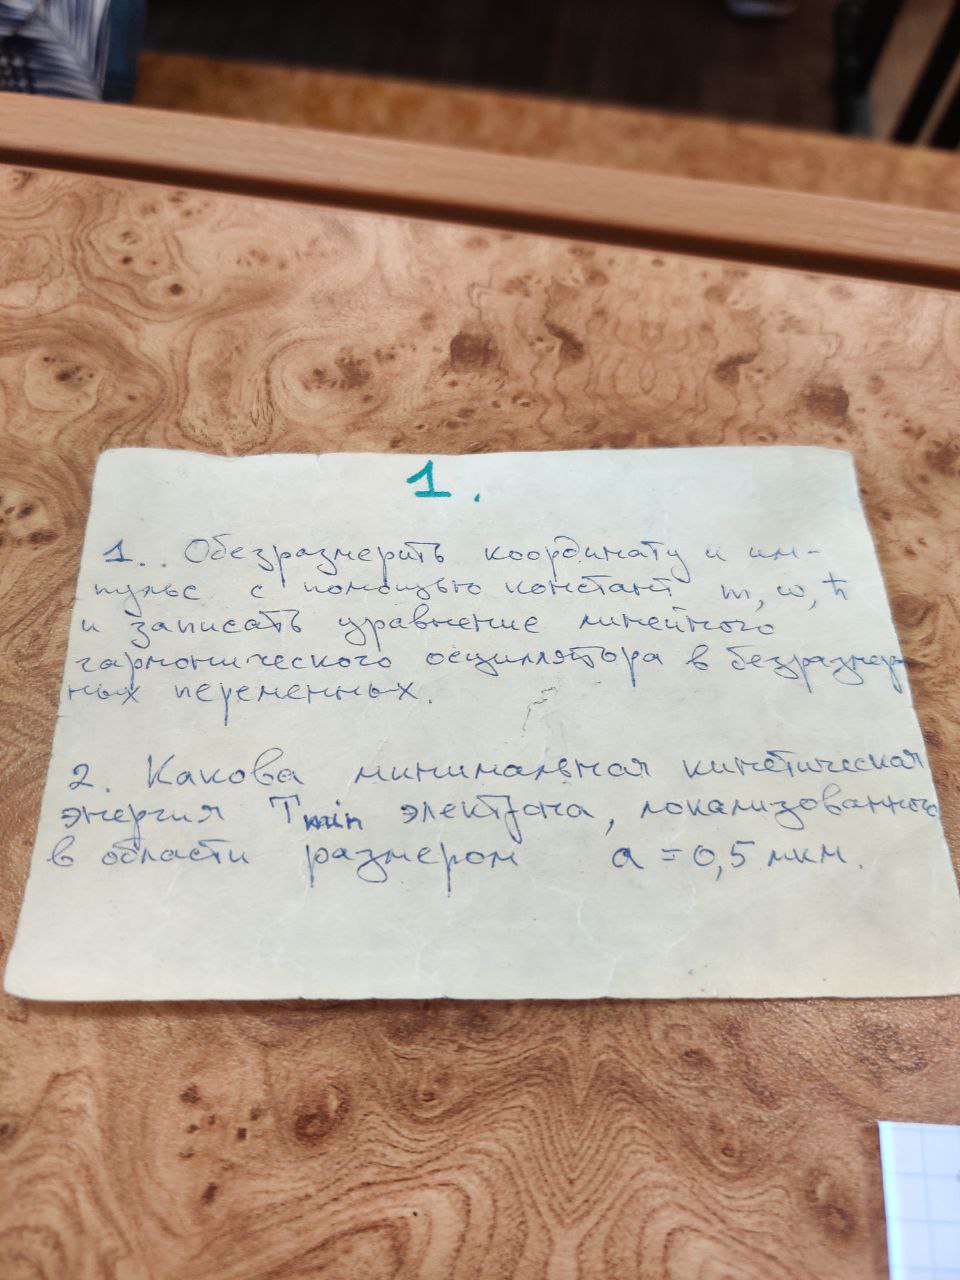 1.
1. Обезразмерить координату и им-
пульс с помощью констант m, ω, ħ
и записать уравнение линейного
гармонического осциллятора в безразмер-
ных переменных.
2. Какова минимальная кинетическая
энергия Tmin электрона, локализованного
в области размером a = 0,5 мкм.